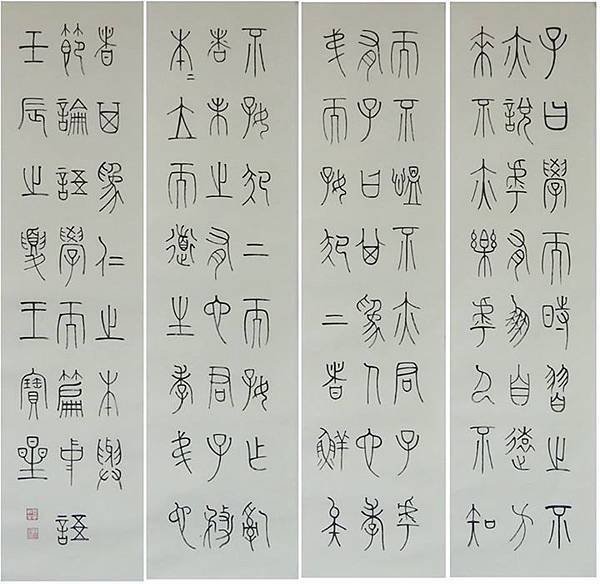 子曰學而時習之不
亦說乎有朋自遠方
來不亦樂乎人不知
而不慍不亦君子乎
有子曰其為人也孝
弟而好犯上者鮮矣
不好犯上而好作亂
者未之有也君子務
本〻立而道生孝弟也
者其為仁之本與
節論語學而篇中語
壬辰之夏王寶